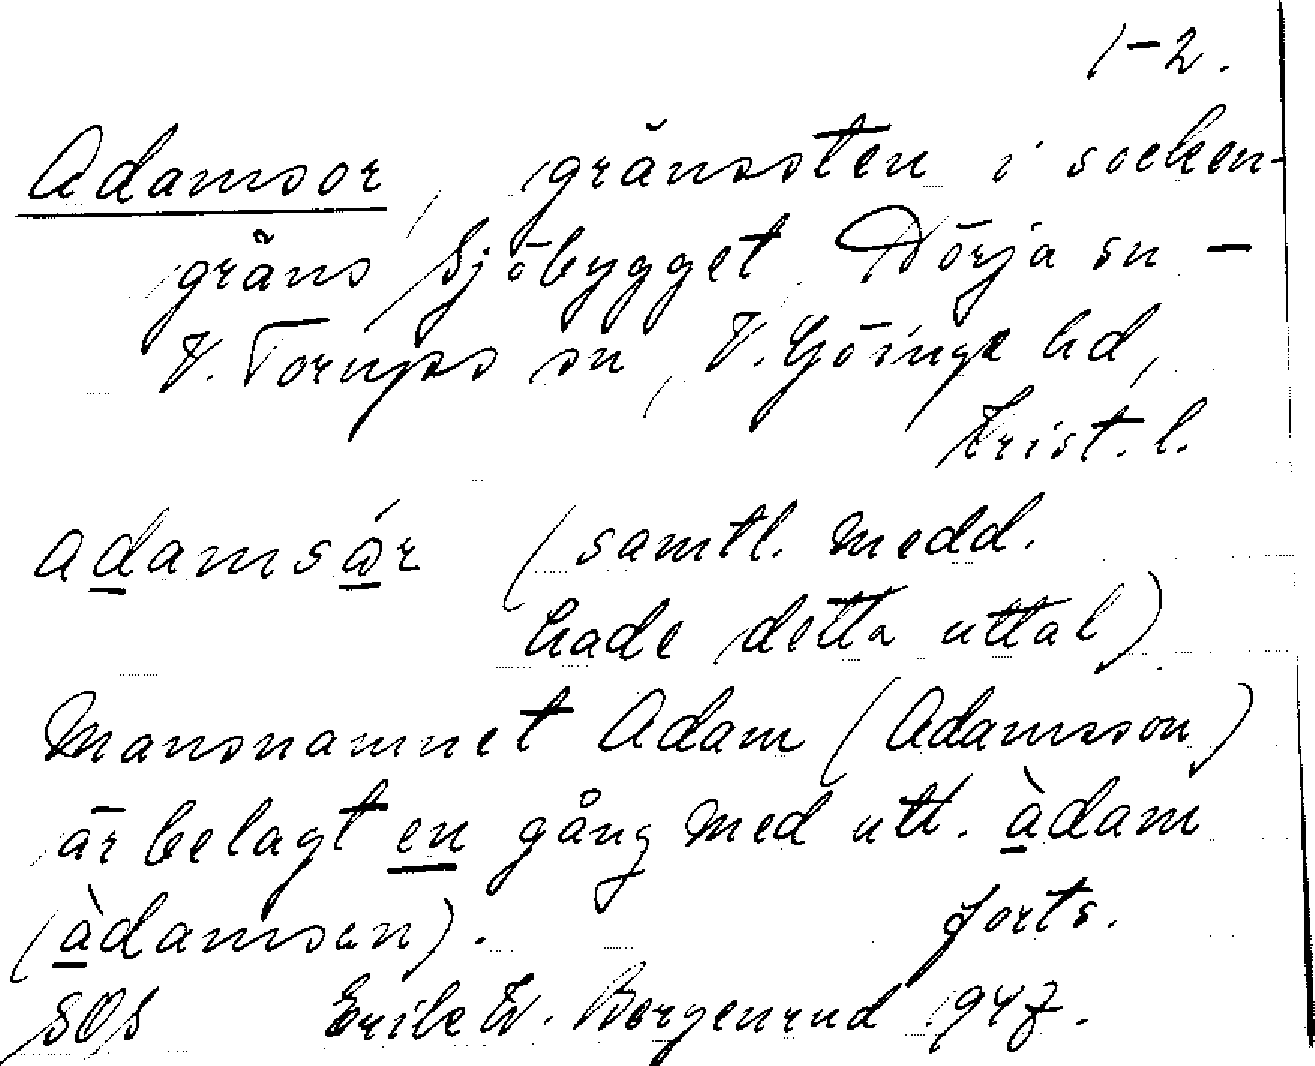 1-2.
Adamsor, gränssten i socken-
gräns Sjöbygget Nörja sn -
V. Torups sn, V. Göinge hd,
Krist. l.
adamsór (samtl. medd.
hade detta uttal)
Mansnamnet Adam (Adamsson)
är belagt en gång med utt. àdam
(àdamsen).
forts.
SOS Erik W. Bergenrud 1947.